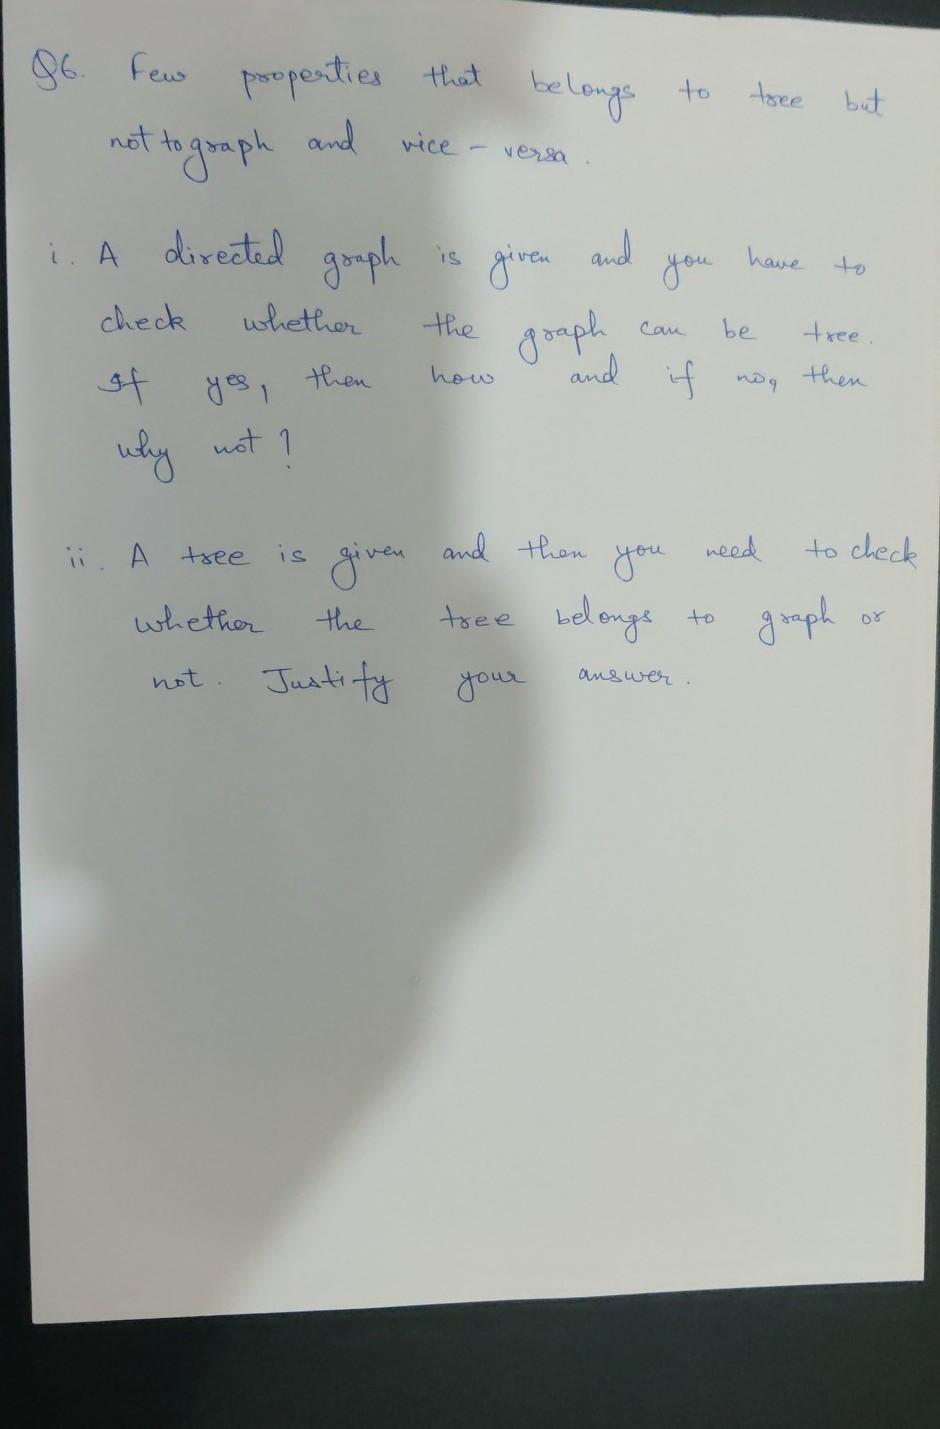 Q6. Few properties that belongs to tree but
not to graph and vice - versa.
i. A directed graph is given and you have to
check whether the graph can be tree.
If yes, then how and if no, then
why not?
ii. A tree is given and then you need to check
whether the tree belongs to graph or
not. Justify your answer.